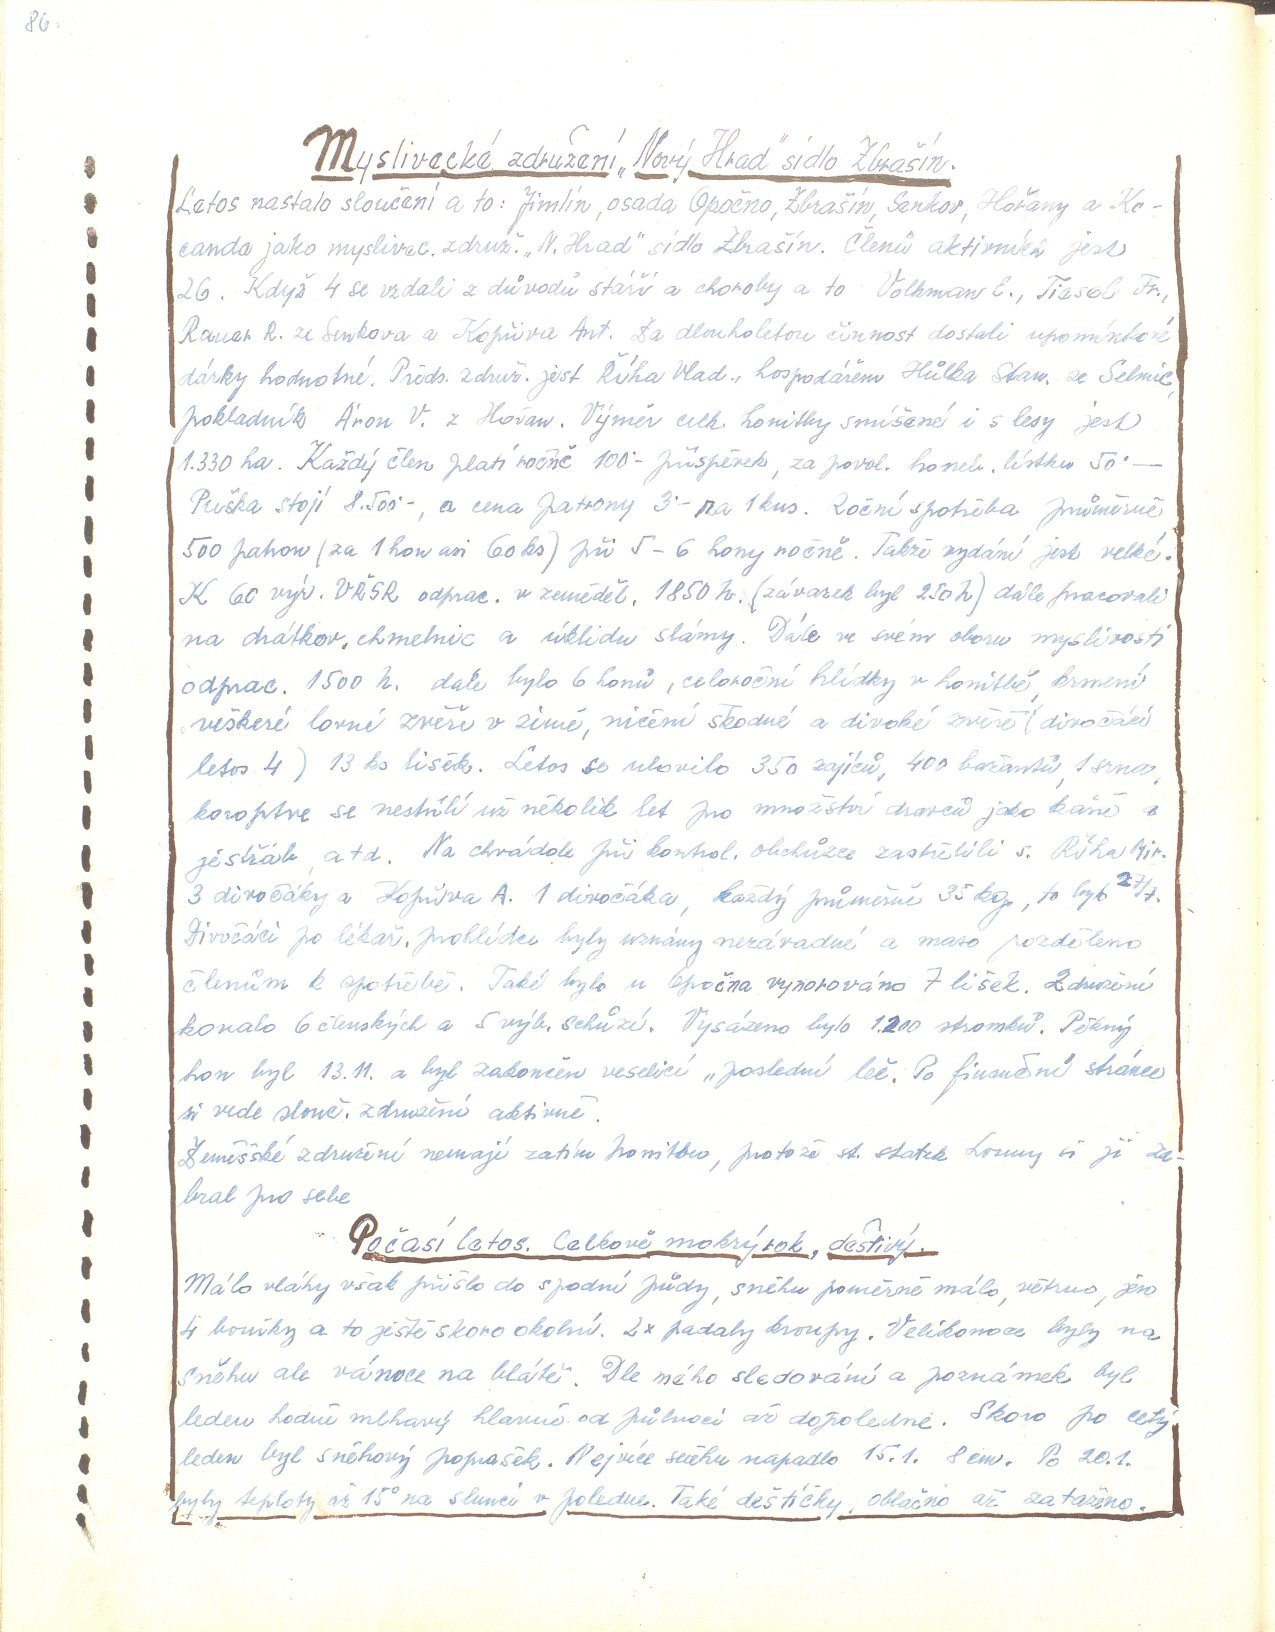 86.
Myslivecké združení „Nový Hrad" sídlo Zbrašín.
Letos nastalo sloučení a to: Žimlín, osada Opočno, Zbrašín, Senkov, Hořany a Ko-
canda jako myslivec. združ. „N. Hrad" sídlo Zbrašín. Členů aktivních jest
26. Když 4 se vzdali z důvodů stáří a choroby a to Volkman C., Tiesel Fr.,
Rauer R. ze Senkova a Kopřiva Ant. Za dlouholetou činnost dostali upomínkové
dárky hodnotné. Préds. združ. jest Říha Vlad., hospodářem Hůlka Stan. ze Selmic,
pokladník Áron V. z Hořan. Výměr celk. honitby smíšené i s lesy jest
1.330 ha. Každý člen platí ročně 100·- příspěvek, za povol. honeb. lístku 50·—
Puška stojí 8.500·-, a cena patrony 3·- za 1 kus. Roční spotřeba průměrně
500 patron (za 1 hon asi 60 ks) při 5 - 6 hony ročně. Takže vydání jest velké.
K 60 výr. VŘSR odprac. v zeměděl. 1850 h. (závazek byl 250 h) dále pracovali
na drátkov. chmelnic a úklidu slámy. Dále ve svém oboru myslivosti
odprac. 1500 h. dále bylo 6 honů, celoroční hlídky v honitbě, krmení
veškeré lovné zvěře v zimě, ničení škodné a divoké zvěře (divočáci
letos 4) 13 ks lišek. Letos se ulovilo 350 zajíců, 400 bažantů, 1 srna,
koroptve se nestřílí už několik let pro množství dravců jako káně a
jestřáb, atd. Na chrádole při kontrol. obchůzce zastřelili s. Říha Mir.
3 divočáky a Kopřiva A. 1 divočáka, každý průměrně 35 kg, to bylo 27/7.
Divočáci po lékař. prohlídce byly uznány nezávadné a maso rozděleno
členům k spotřebě. Také bylo u Opočna vynorováno 7 lišek. Združení
konalo 6 členských a 5 výb. schůzí. Vysázeno bylo 1.200 stromků. Pěkný
hon byl 13.11. a byl zakončen veselicí „poslední leč. Po finanční stránce
si vede slouč. združení aktivně.
Žemíšské združení nemají zatím honitbu, protože st. statek Louny si jí za-
bral pro sebe
Počasí letos. Celkově mokrý rok, deštivý.
Málo vláhy však přišlo do spodní půdy, sněhu poměrně málo, větrno, jen
4 bouřky a to ještě skoro okolní. 2x padaly kroupy. Velikonoce byly na
sněhu ale vánoce na blátě. Dle mého sledování a poznámek byl
leden hodně mlhavý hlavně od půlnoci až dopoledne. Skoro po celý
leden byl sněhový poprašek. Nejvíce sněhu napadlo 15.1. 8 cm. Po 20.1.
byly teploty až 15° na slunci v poledne. Také deštíčky, oblačno až zataženo.